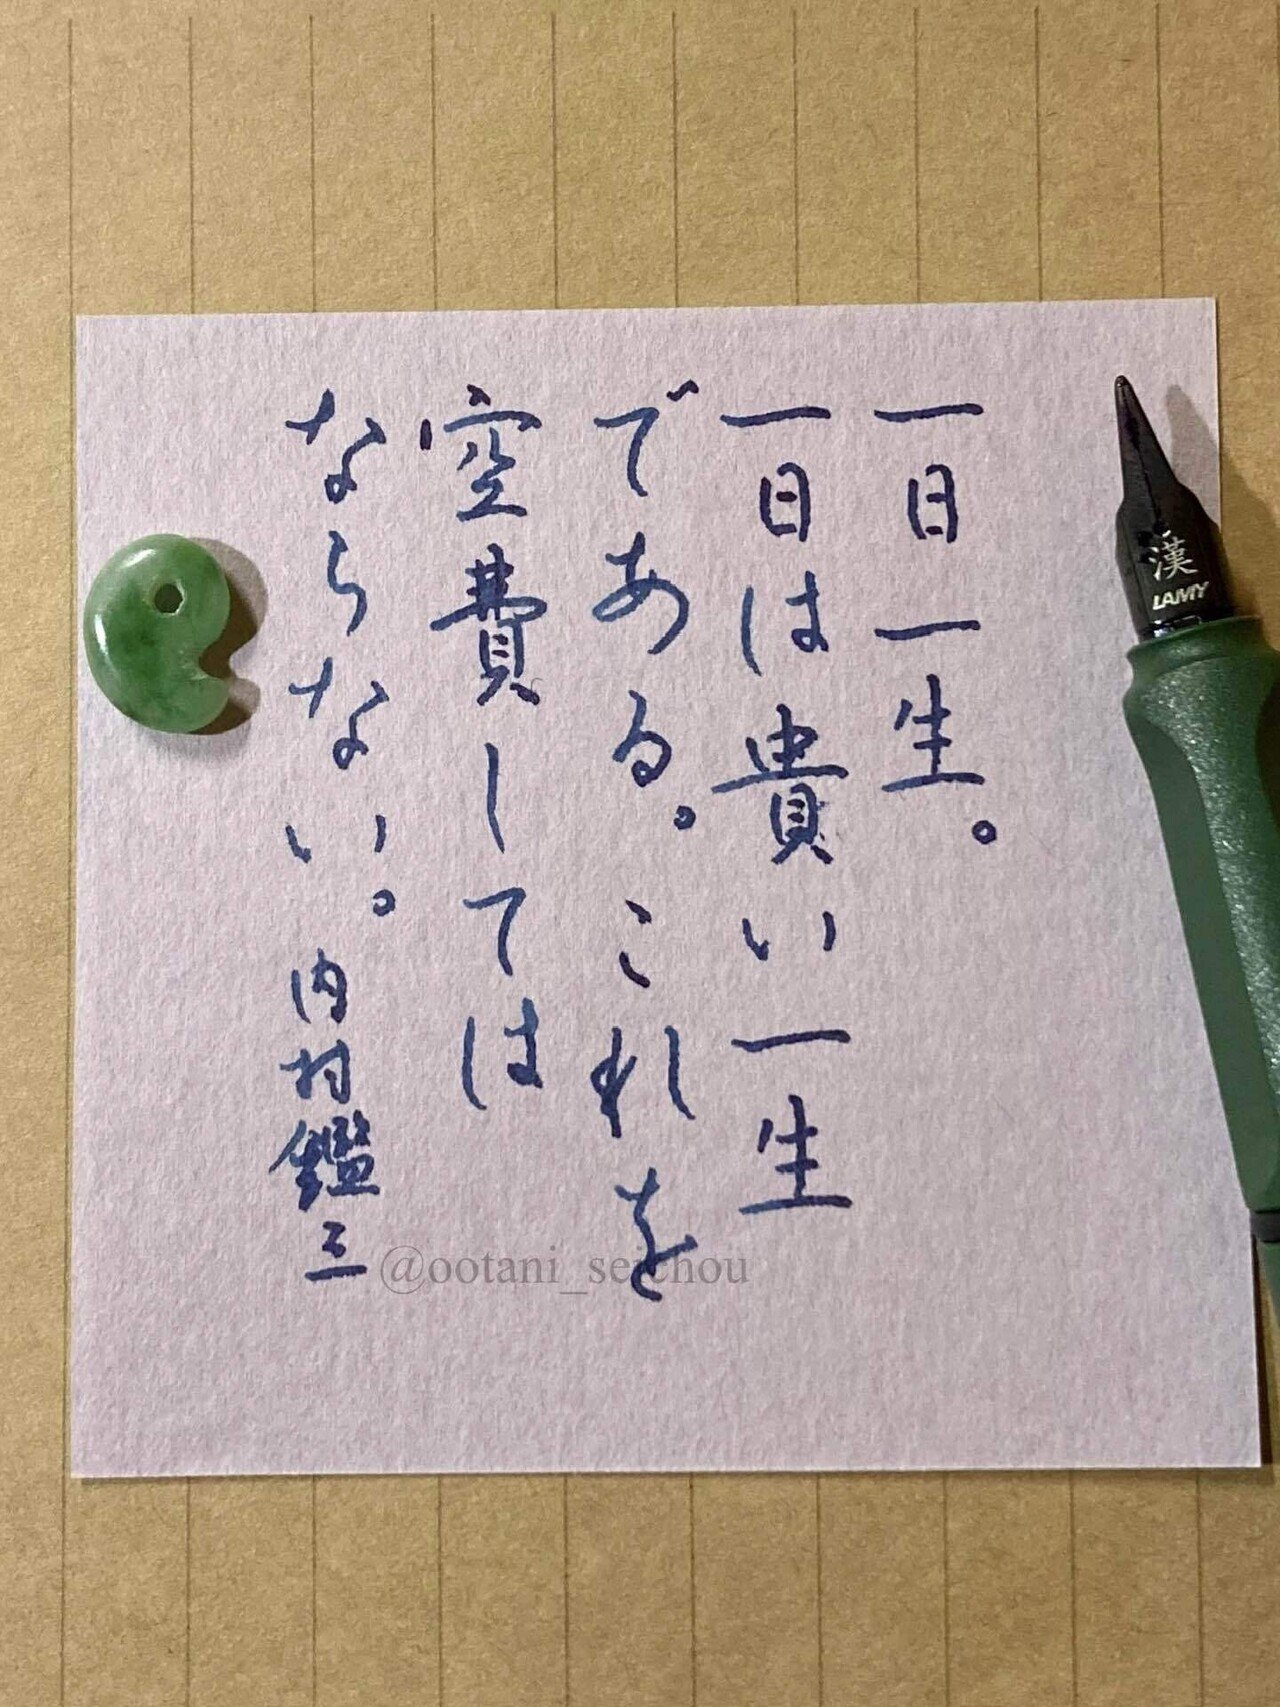 一日一生。
一日は貴い一生
である。これを
空費しては
ならない。内村鑑三
漢
LAMY
@ootani_seichou